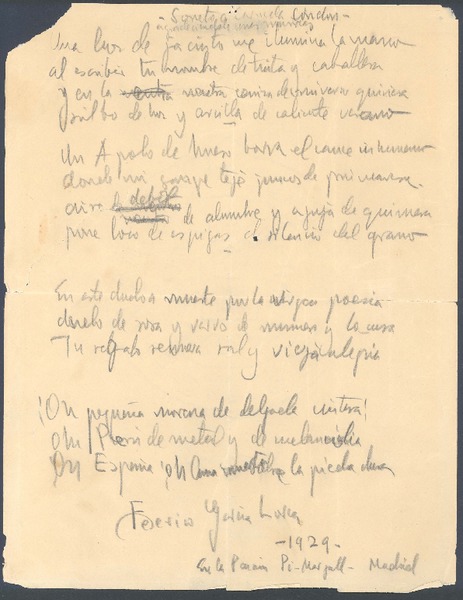 - Soneto a Carmela Condon -
agradeciéndole unas muñecas
Una luz de jacinto me ilumina la mano
al escribir tu nombre de tinta y cabellera
y en la neutra ceniza de mi verso quisiera
silbo de luz y arcilla de caliente verano
Un Apolo de hueso borra el cauce inhumano
donde mi sangre teje juncos de primavera.
aire débil de alumbre y aguja de quimera
pone loco de espigas el silencio del grano
En este duelo a muerte por la virgen poesía
duelo de rosa y verso de numero y locura
Tu regalo renueva sal y vieja alegria
¡Oh pequeña morena de delgada cintura!
Oh Perú de metal y de melancolia
Oh España! oh luna muerta sobre la piedra dura
Federico García Lorca
- 1929 -
En la Pi-Margall - Madrid